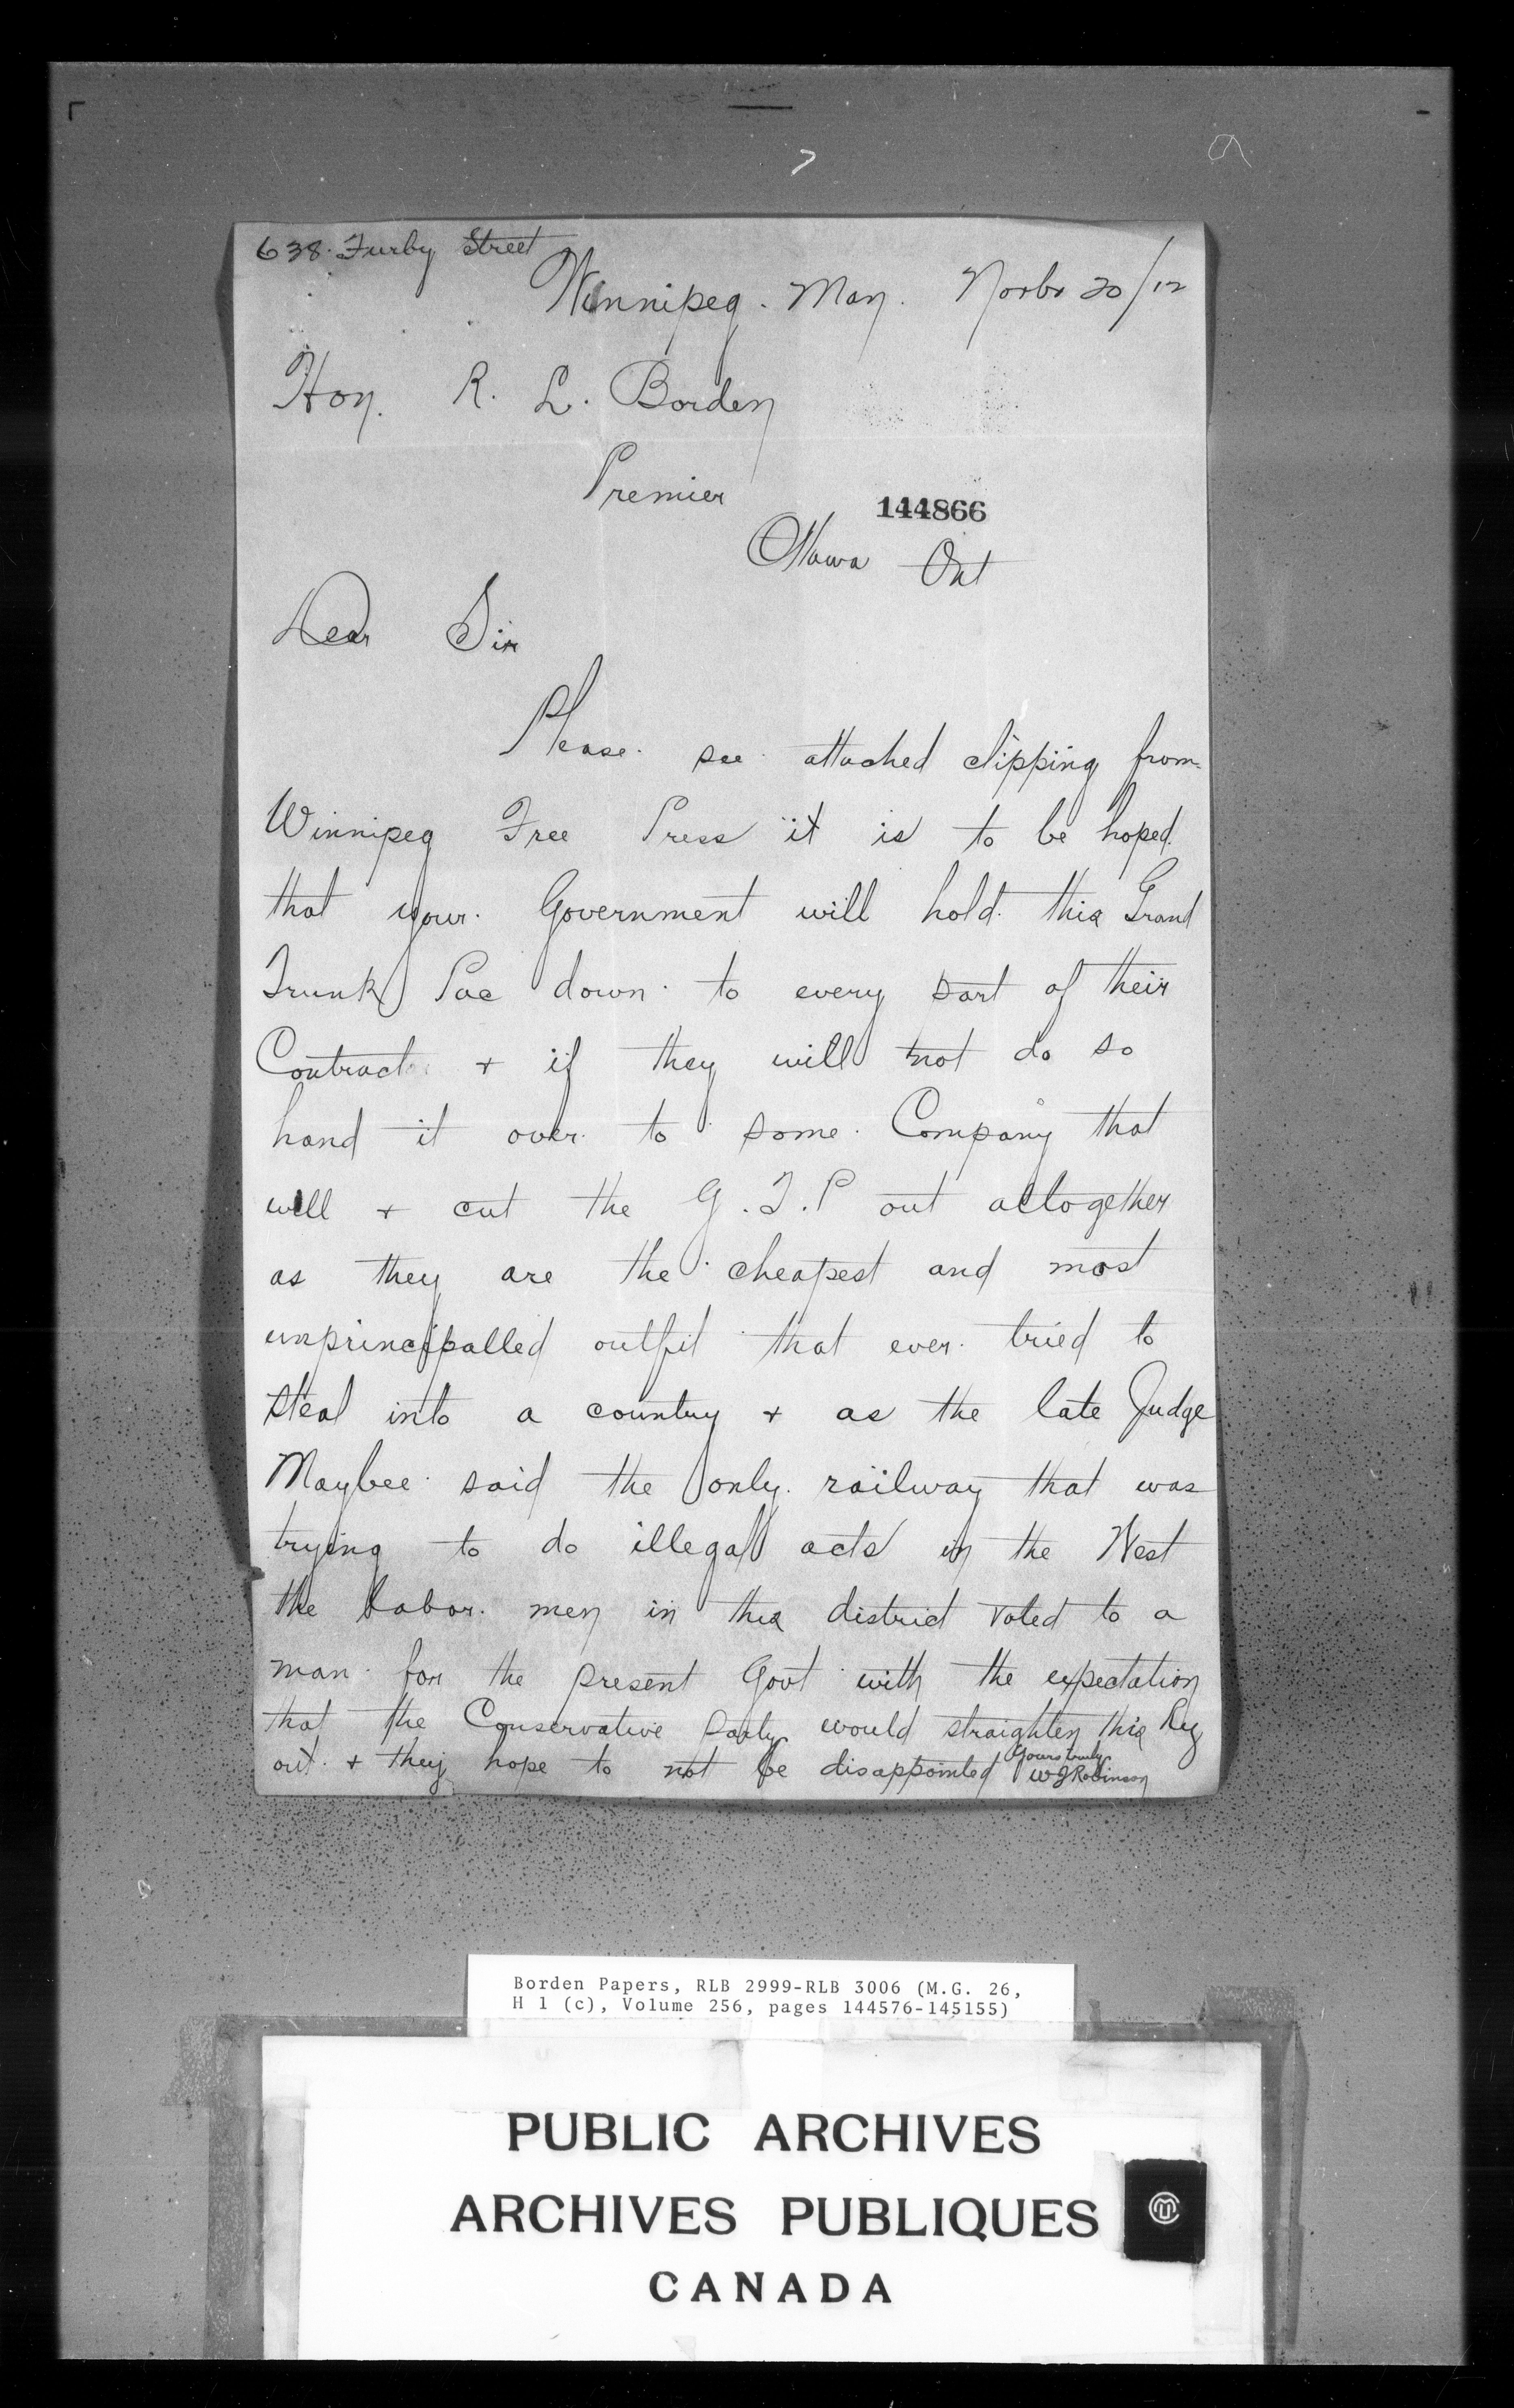 638. Furby Street
Winnipeg. Man. Novbr 20/12
Hon. R. L. Borden
Premier
144866
Ottawa Ont
Dear Sir
Please see attached clipping from
Winnipeg Free Press it is to be hoped
that your Government will hold this Grand
Trunk Pac down to every part of their
Contract + if they will not do so
hand it over to some Company that
will + cut the G.T.P out altogether
as they are the cheapest and most
unprincipalled outfit that ever tried to
steal into a country + as the late Judge
Maybee said the only railway that was
trying to do illegal acts in the West
the labor men in this district voted to a
man for the present Govt with the expectation
that the Conservative Party would straighten this Ry
out + they hope to not be disappointed Yours truly
W J Robinson
Borden Papers, RLB 2999-RLB 3006 (M.G. 26,
H 1 (c), Volume 256, pages 144576-145155)
PUBLIC ARCHIVES
ARCHIVES PUBLIQUES
CANADA